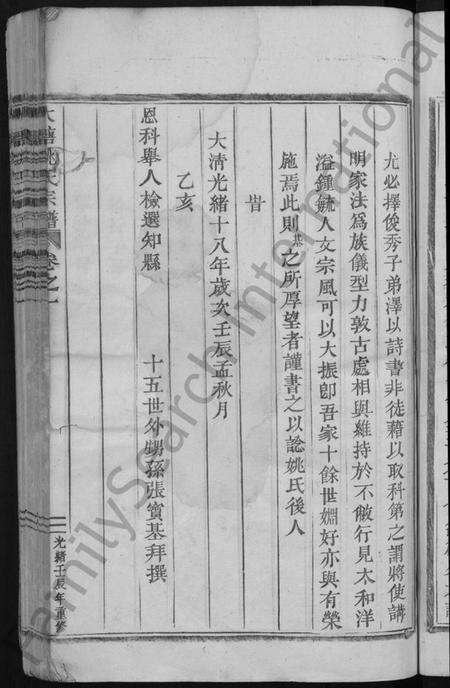 尤必擇俊秀子弟澤以詩書非徒藉以取科第之謂將使講
明家法爲族儀型力敦古處相與維持於不敝行見太和洋
溢鍾毓人文宗風可以大振卽吾家十餘世婣好亦與有榮
施焉此則基之所厚望者謹書之以諗姚氏後人
旹
大清光緒十八年歲次壬辰孟秋月
乙亥
恩科舉人檢選知縣 十五世外甥孫張寶基拜撰
姚氏宗譜 卷之一
光緒壬辰年重修
FamilySearch International